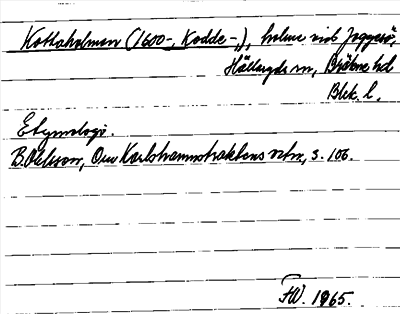 Kottaholmen (1600-, Kodde-,), holme vid Joggesö,
Hällaryds sn, Bräkne hd
Blek. l.
Etymologi.
B. Ohlsson, Om Karlshamnstraktens ortn, s. 106.
FW. 1965.